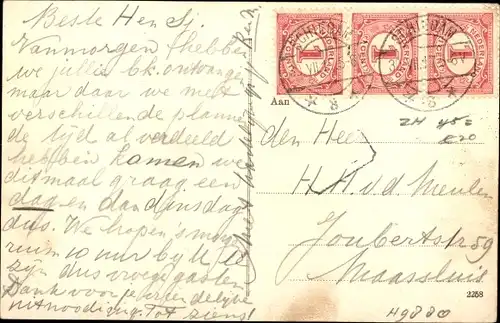 Beste Hen Sj.
Vanmorgen hebben
we jullie bk. ontvangen
maar daar we met
verschillende plannen
de tijd al verdeeld
hebben komen we
ditmaal graag een
dag en dan dinsdag
dus. We hopen 's morgens
10 uur bij U te
zijn dus vroege gasten
Dank voor je vriendelijke
uitnoodiging. Tot ziens!
NEDERLAND
1
1
1
Aan
den Heer
H. H. v. d. Meulen
Joubertstr 59
Maassluis
2258
49830